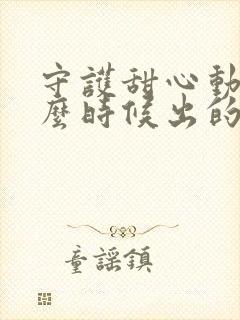 守護甜心動
麼時候出的
童謠鎮